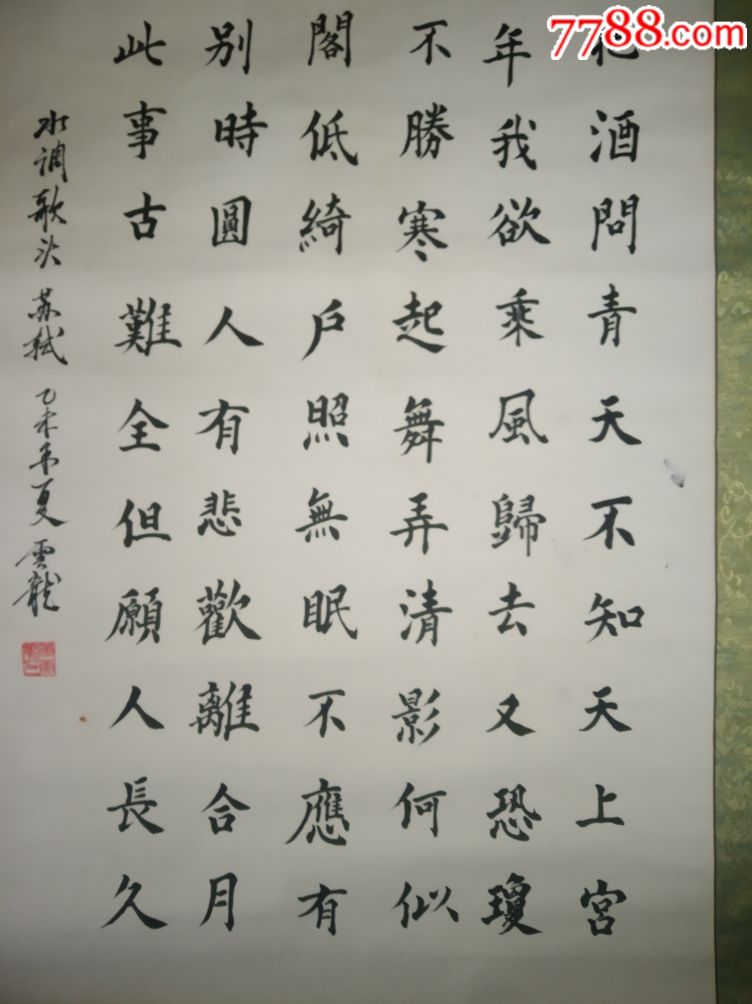 7788.com
酒問青天不知天上宮
年我欲乘風歸去又恐瓊
不勝寒起舞弄清影何似
閣低綺户照無眠不應有
别時圓人有悲歡離合月
此事古難全但願人長久
水调歌头 苏轼 乙未年夏 雲龍